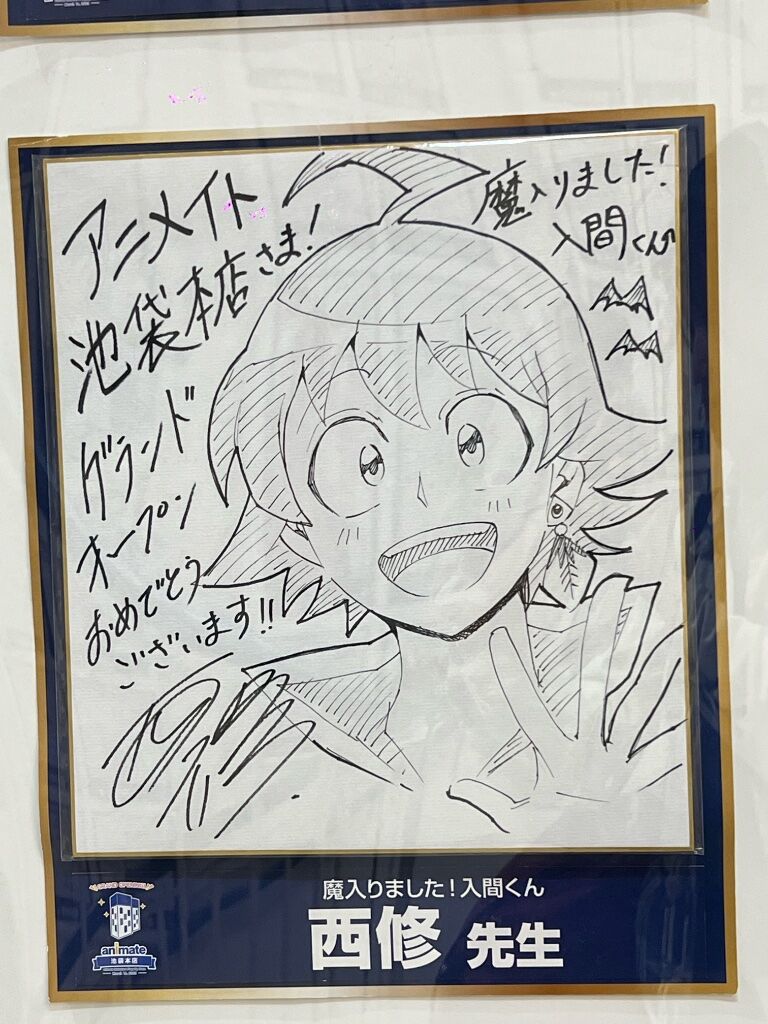 アニメイト
池袋本店さま!
グランド
オープン
おめでとう
ございます!!
魔入りました!
入間くん
魔入りました!入間くん
西修 先生
GRAND OPENING
animate
池袋本店